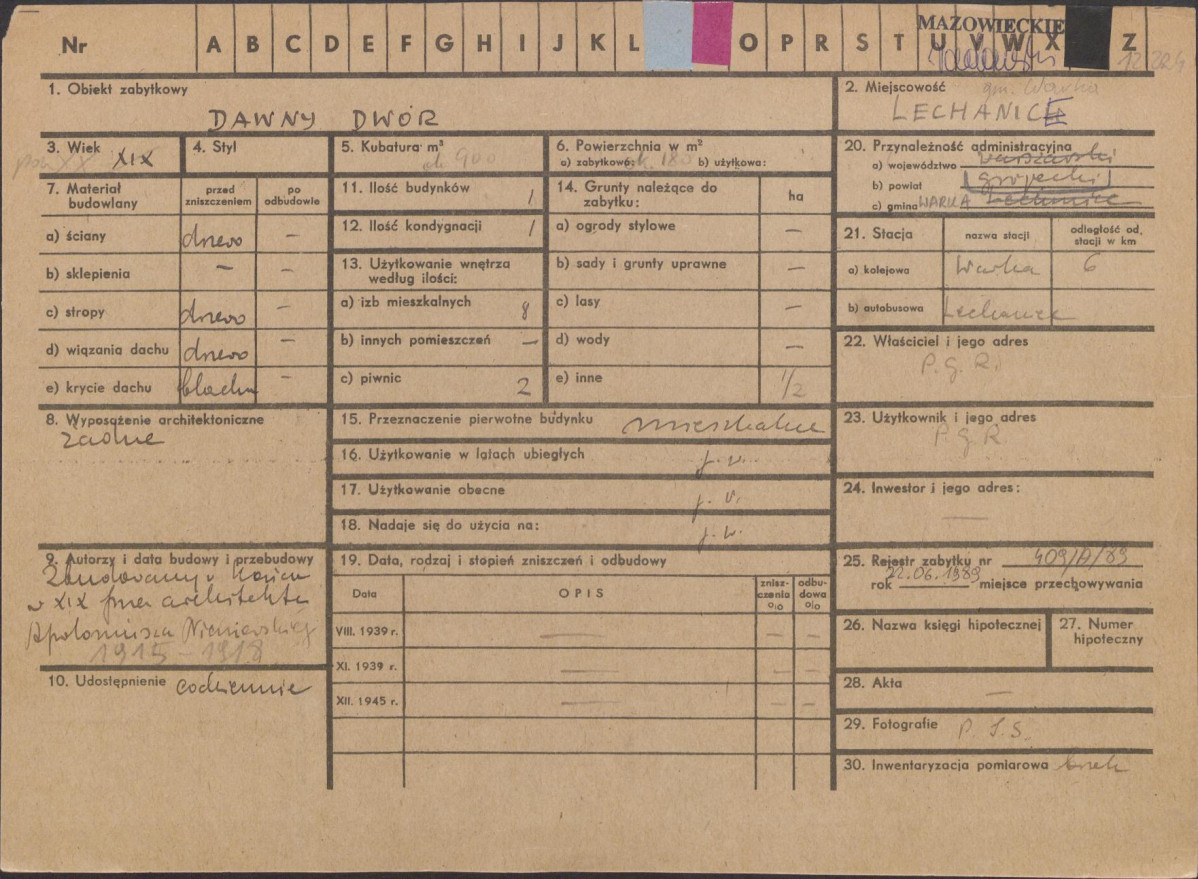 Nr A B C D E F G H I J K L O P R S T U V W X Z
MAZOWIECKIE
12224
1. Obiekt zabytkowy
DAWNY DWÓR
2. Miejscowość gm. Warka
LECHANICE
3. Wiek XIX
4. Styl
5. Kubatura m³
ok 900
6. Powierzchnia w m²
a) zabytkowa: ok. 180 b) użytkowa:
7. Materiał budowlany
przed zniszczeniem
po odbudowie
a) ściany drzewo —
b) sklepienia — —
c) stropy drzewo —
d) wiązania dachu drzewo —
e) krycie dachu blacha —
8. Wyposażenie architektoniczne
żadne
9. Autorzy i data budowy i przebudowy
Zbudowany w końcu
w XIX przez architekta
Apoloniusza Nieniewskiego
1915 – 1918
10. Udostępnienie codziennie
11. Ilość budynków 1
12. Ilość kondygnacji 1
13. Użytkowanie wnętrza
według ilości:
a) izb mieszkalnych 8
b) innych pomieszczeń —
c) piwnic 2
14. Grunty należące do
zabytku:
ha
a) ogrody stylowe —
b) sady i grunty uprawne —
c) lasy —
d) wody —
e) inne 1/2
15. Przeznaczenie pierwotne budynku mieszkalne
16. Użytkowanie w latach ubiegłych j. w.
17. Użytkowanie obecne j. w.
18. Nadaje się do użycia na: j. w.
19. Data, rodzaj i stopień zniszczeń i odbudowy
Data
OPIS
znisz-
czenia
o/o
odbu-
dowa
o/o
VIII. 1939 r. — — —
XI. 1939 r. — — —
XII. 1945 r. — — —
20. Przynależność administracyjna
a) województwo warszawskie
b) powiat grójecki
c) gmina WARKA Lechanice
21. Stacja
nazwa stacji
odległość od,
stacji w km
a) kolejowa Warka 6
b) autobusowa Lechanice
22. Właściciel i jego adres
P.G.R.
23. Użytkownik i jego adres
P.G.R.
24. Inwestor i jego adres:
—
25. Rejestr zabytku nr 409/A/89
rok 22.06.1989 miejsce przechowywania
26. Nazwa księgi hipotecznej
27. Numer
hipoteczny
28. Akta —
29. Fotografie P.I.S.
30. Inwentaryzacja pomiarowa brak